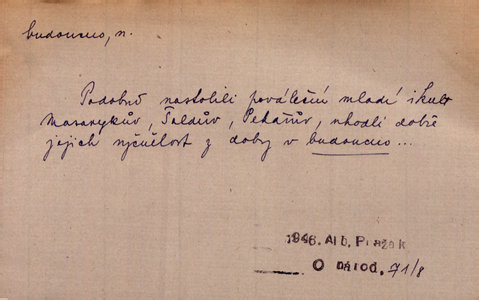 budoucno, n.
Podobně nastolili pováleční mladí i kult
Masarykův, Šaldův, Pekařův, uhodli dobře
jejich výčnělost z doby v budoucno ...
1946. Alb. Pražák
O národ. 71/8